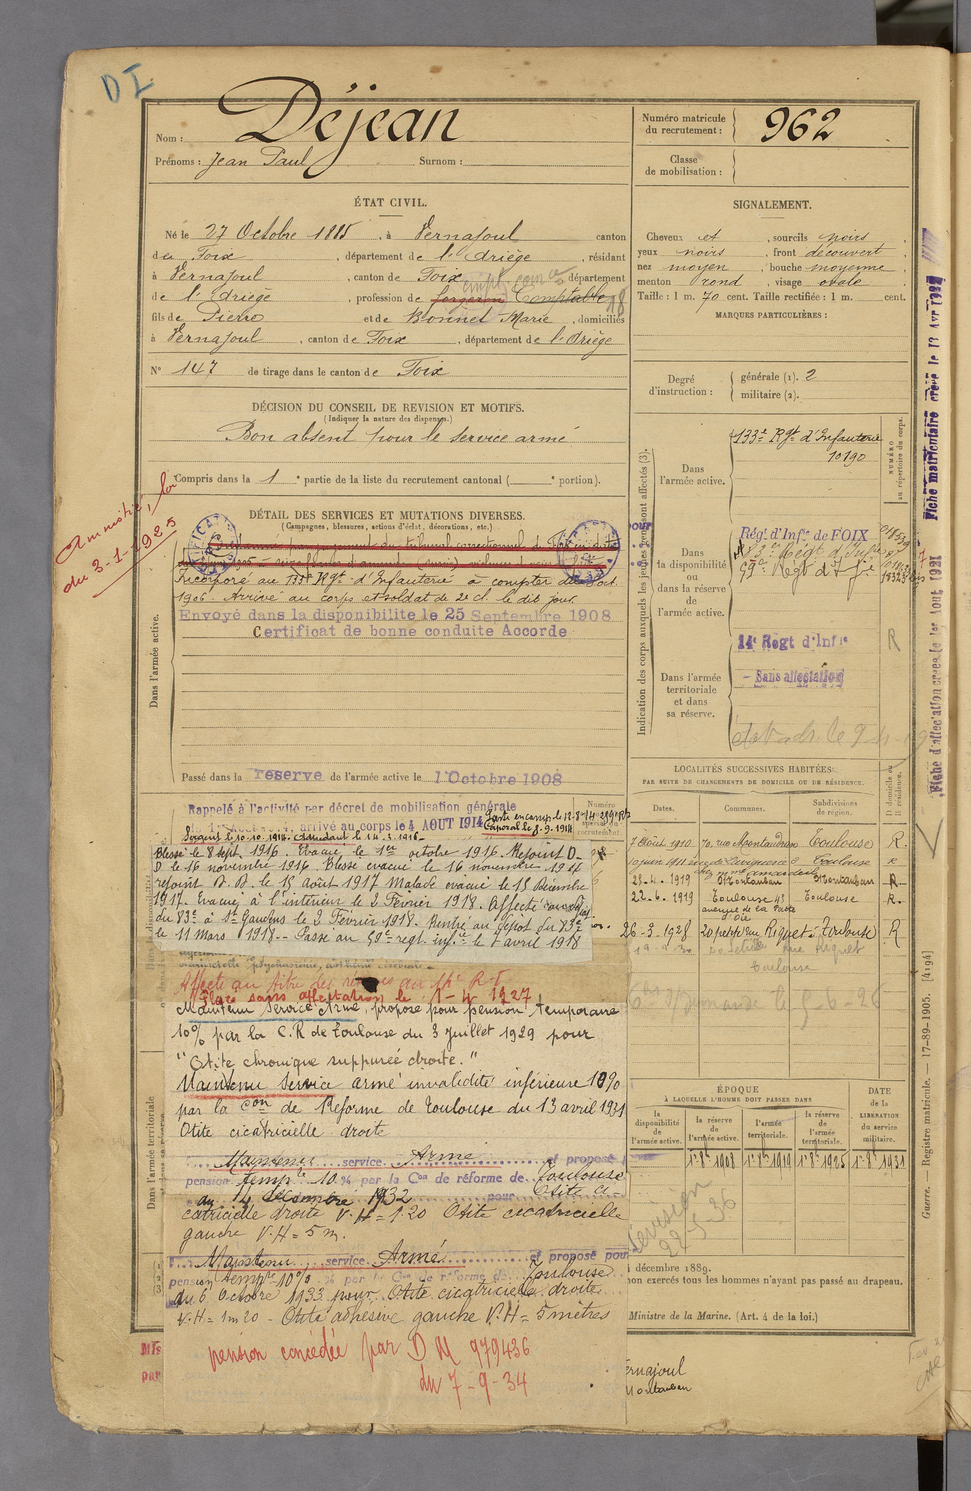 D I
Nom : Déjean
Prénoms : Jean Paul Surnom :
Numéro matricule
du recrutement : 962
Classe
de mobilisation :
ÉTAT CIVIL.
Né le 27 Octobre 1885, à Vernajoul canton
de Foix, département de l'Ariège, résidant
à Vernajoul, canton de Foix département
de l'Ariège, profession de forgeron Comptable
fils de Pierre et de Bonnel Marie, domiciliés
à Vernajoul, canton de Foix, département de l'Ariège
N° 147 de tirage dans le canton de Foix
SIGNALEMENT.
Cheveux et, sourcils noirs,
yeux noirs, front découvert,
nez moyen, bouche moyenne
menton rond, visage ovale
Taille : 1 m. 70 cent. Taille rectifiée : 1 m. cent.
MARQUES PARTICULIÈRES :
Degré
d'instruction :
générale (1). 2
militaire (2).
DÉCISION DU CONSEIL DE REVISION ET MOTIFS.
(Indiquer la nature des dispenses.)
Bon absent pour le service armé
Compris dans la 1e partie de la liste du recrutement cantonal ( e portion).
Amnistié, loi
du 3-1-1925
DÉTAIL DES SERVICES ET MUTATIONS DIVERSES.
(Campagnes, blessures, actions d'éclat, décorations, etc.)
Incorporé au 133e Rgt d'Infanterie à compter du
1906. Arrivé au corps et soldat de 2e cl. le dit jour.
Envoyé dans la disponibilité le 25 Septembre 1908
Certificat de bonne conduite Accordé
Dans l'armée active.
Passé dans la réserve de l'armée active le 1 Octobre 1908
Indication des corps auxquels les jeunes gens sont affectés (3).
NUMÉRO
au répertoire du corps.
Dans
l'armée active.
133e Rgt d'Infanterie
10190
Dans
la disponibilité
ou
dans la réserve
de
l'armée active.
Régt d'Infie de FOIX
59e Regt d'Infie
Dans l'armée
territoriale
et dans
sa réserve.
14e Regt d'Infie
- Sans affectation
R
Fiche matricultaire créée le 12 Avr 1922
Fiche d'affectation créée le 1er Aout 1921
Rappelé à l'activité par décret de mobilisation générale
arrivé au corps le 4 AOUT 1914
Caporal le 8.9.1914
Sergent le 10.10.1914. Adjudant le 14.2.1916.
Blessé le 8 sept. 1916. Evacué le 1er octobre 1916. Rejoint D-
D le 16 novembre 1916. Blessé evacué le 16 novembre 1916
rejoint D.D. le 15 Août 1917 Malade evacué le 15 Décembre
1917. Evacué à l'intérieur le 2 Février 1918. Affecté
du 83e à St Gaudens le 2 Février 1918. Rentré au dépôt du 83e
le 11 Mars 1918.- Passé au 59e regt. inf.ie le 1 avril 1918
Affecté au titre des réserves au 14e R.I.
Placé sans affectation le 1-4 1927
Maintenu Service Armé, proposé pour pension temporaire
10% par la C.R de Toulouse du 3 Juillet 1929 pour
"Otite chronique suppurée droite."
Maintenu service armé invalidité inférieure 10%
par la Con de Réforme de Toulouse du 13 avril 1931
Otite cicatricielle droite
Maintenu service Armé et proposé
pension temp.re 10 % par la Con de réforme de Toulouse
du 14 Décembre 1932 pour Otite ci-
catricielle droite V.H = 1.20 Otite cicatricielle
gauche V.H = 5 m.
Maintenu service Armé et proposé pour
pension temp.re 10% par la Con de réforme de Toulouse
du 6 Octobre 1933 pour Otite cicatricielle droite
V.H = 1m20 - Otite adhésive gauche V.H = 5 mètres
pension concédée par D M 979436
du 7-9-34
Dans l'armée territoriale
LOCALITÉS SUCCESSIVES HABITÉES
PAR SUITE DE CHANGEMENTS DE DOMICILE OU DE RÉSIDENCE.
Dates. Communes. Subdivisions
de région.
D domicile ou
R résidence.
7 Août 1910 70, rue Montaudran Toulouse R.
10 juin 1911 Toulouse R
23-4-1919 Montauban Montauban R
22-6-1919 Toulouse 43 Toulouse R.
26-3-1928 20 Riquet Toulouse R
rue Riquet
Toulouse
ÉPOQUE
À LAQUELLE L'HOMME DOIT PASSER DANS
la
disponibilité
de
l'armée active.
la réserve
de
l'armée active.
l'armée
territoriale.
la réserve
de
l'armée
territoriale.
DATE
de la
LIBÉRATION
du service
militaire.
1er 8bre 1908 1er 8bre 1919 1er 8bre 1925 1er 8bre 1931
Révision
22-5-36
décembre 1889.
non exercés tous les hommes n'ayant pas passé au drapeau.
Ministre de la Marine. (Art. 4 de la loi.)
Guerre. — Registre matricule. — 17-89-1905. [4194]
ernajoul
Montauban